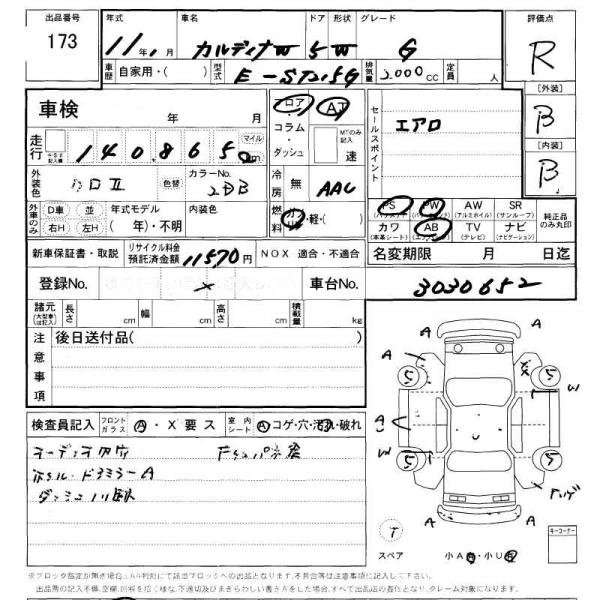 出品番号 年式 車名 ドア 形状 グレード 評価点
173 11年1月 カルディナW 5 W G R
車歴 自家用・( ) 型式 E-ST215G 排気量 2000cc 定員 人
[外装]
B
[内装]
B
車検 年 月
走行 140865 マイル km
ロア・コラム・ダッシュ
AT
MTのみ記入
速
セールスポイント
エアロ
外装色 シロII 色替 カラーNo. 2BB
冷房 無 AAC
外車のみ D車 並 右H 左H 年式モデル ( 年)・不明 内装色
燃料 ガ・軽・( )
PS PW AW SR
(アルミホイル) (サンルーフ)
カワ AB TV ナビ
(本革シート) (エアバッグ) (テレビ) (ナビゲーション)
純正品のみ丸印
新車保証書・取説 リサイクル料金預託済金額 11570円 NOX 適合・不適合
名変期限 月 日迄
登録No. × 車台No. 3030652
諸元 (大型車は記入) 長さ cm 幅 cm 高さ cm 積載量 kg
注意事項 後日送付品( )
検査員記入 フロントガラス A・X要ス 室内シート A コゲ・穴・汚れ・破れ
ホイル・ドアミラーA
A A
A A
5 5
W
A
W
5 5
A
A A
T
スペア 小A・小U
キーコーナー